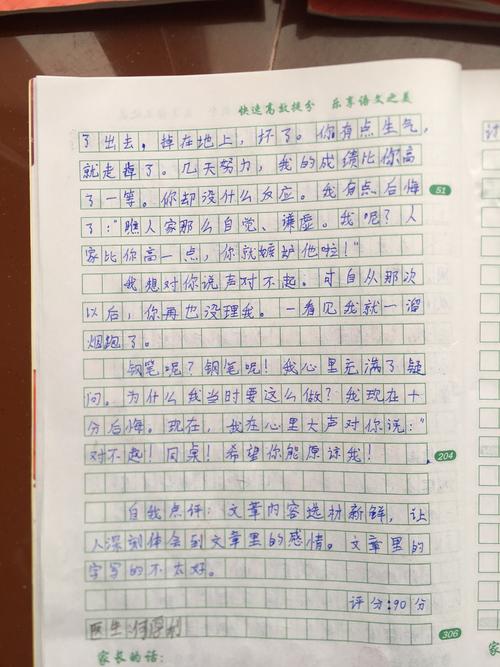 快速高效提分 乐享语文之美
了出去,掉在地上,坏了。你有点生气,
就走掉了。几天努力,我的成绩比你高
了一等。你却没什么反应。我有点后悔
51
了:"瞧人家那么自觉、谦虚。我呢?人
家比你高一点,你就嫉妒他啦!"
我想对你说声对不起。可自从那次
以后,你再也没理我。一看见我就一溜
烟跑了。
钢笔呢?钢笔呢!我心里充满了疑
问。为什么我当时要这么做?我现在十
分后悔。现在,我在心里大声对你说:"
对不起!同桌!希望你能原谅我!
204
自我点评:文章内容选材新鲜,让
人深刻体会到文章里的感情。文章里的
字写的不太好。
评分:90分
306
家长的话: